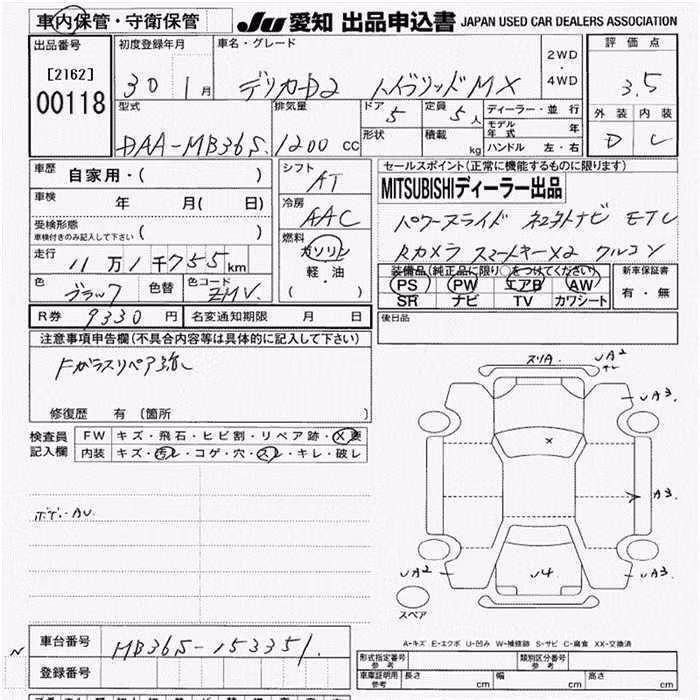 車内保管・守衛保管
JU 愛知 出品申込書 JAPAN USED CAR DEALERS ASSOCIATION
出品番号 初度登録年月 車名・グレード 評価点
[2162]
00118
30 1月 デリカD2 ハイブリッドMX 2WD・4WD 3.5
型式 排気量 ドア 5 定員 5人 ディーラー・並行 外装 内装
DAA-MB36S 1200 CC 形状 積載 kg モデル年式 年 D C
ハンドル 左・右
車歴 自家用・( ) シフト AT セールスポイント(正常に機能するものに限ります)
MITSUBISHIディーラー出品
車検 年 月( 日) 冷房 AAC
受検形態 ( )
車検付きのみ記入して下さい
パワースライド 社外ナビ ETC
走行 11万1千755km 燃料 ガソリン Rカメラ スマートキーX2 クルコン
軽・油
( ・ )
装備品(純正品に限り○をつけてください) 新車保証書
色 ブラック 色替 色コード ZMV PS PW エアB AW 有・無
SR ナビ TV カワシート
R券 9330円 名変通知期限 月 日 後日品
注意事項申告欄(不具合内容等は具体的に記入して下さい)
Fガラスリペア跡
修復歴 有 (箇所 )
検査員記入欄 FW キズ・飛石・ヒビ割・リペア跡・X要
内装 キズ・汚レ・コゲ・穴・スレ・キレ・破レ
ボデーAU
スリA UA2
UA3
A3
UA2 U4 UA3
スペア
A-キズ E-エクボ U-凹み W-補修跡 S-サビ C-腐食 XX-交換済
車台番号 MB36S-153351
登録番号
形式指定番号 参考 類別区分番号 参考
車庫証明用 参考 長さ cm 幅 cm 高さ cm